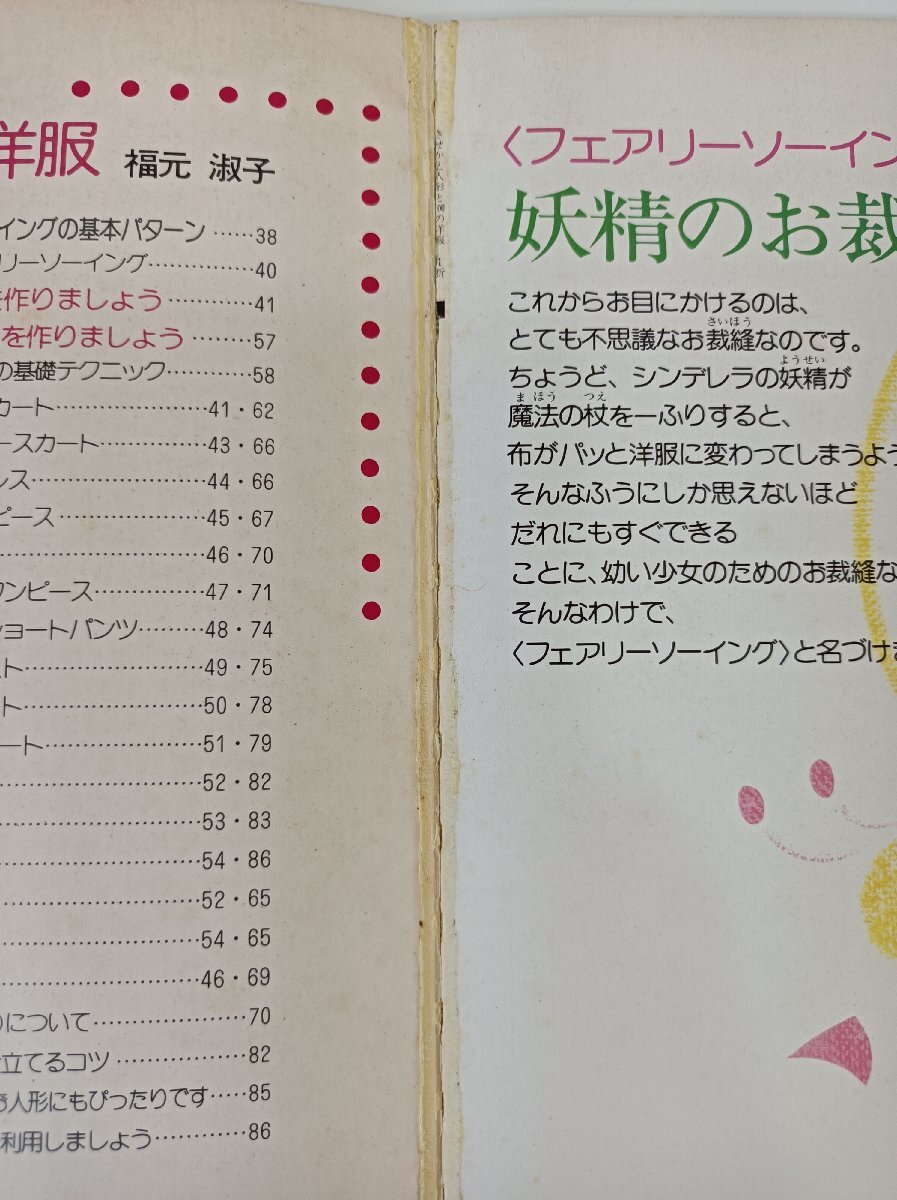 洋服 福元 淑子
イングの基本パターン ……38
リーソーイング……………40
を作りましょう …………41
を作りましょう ………57
の基礎テクニック…………58
カート……………………41・62
ースカート………………43・66
レス………………………44・66
ピース……………………45・67
…………………………46・70
ワンピース………………47・71
ショートパンツ………48・74
ット………………………49・75
ト…………………………50・78
ート………………………51・79
…………………………52・82
…………………………53・83
…………………………54・86
…………………………52・65
…………………………54・65
…………………………46・69
について…………………70
立てるコツ………………82
人形にもぴったりです……85
利用しましょう……………86
〈フェアリーソーイン
妖精のお裁
これからお目にかけるのは、
とても不思議なお裁縫なのです。
さいほう
ちょうど、シンデレラの妖精が
ようせい
魔法の杖を一ふりすると、
まほう つえ
布がパッと洋服に変わってしまうよう
そんなふうにしか思えないほど
だれにもすぐできる
ことに、幼い少女のためのお裁縫な
そんなわけで、
〈フェアリーソーイング〉と名づけま